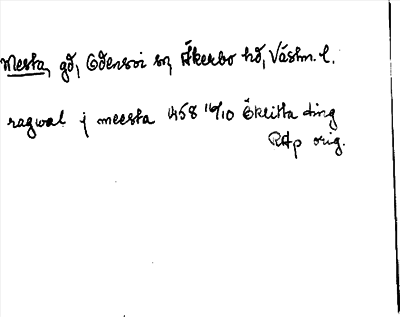 Mesta, gd, Odensvi sn, Åkerbo hd, Västm. l.
ragwal j meesta 1458 16/10 Öklitta ding
RAp orig.